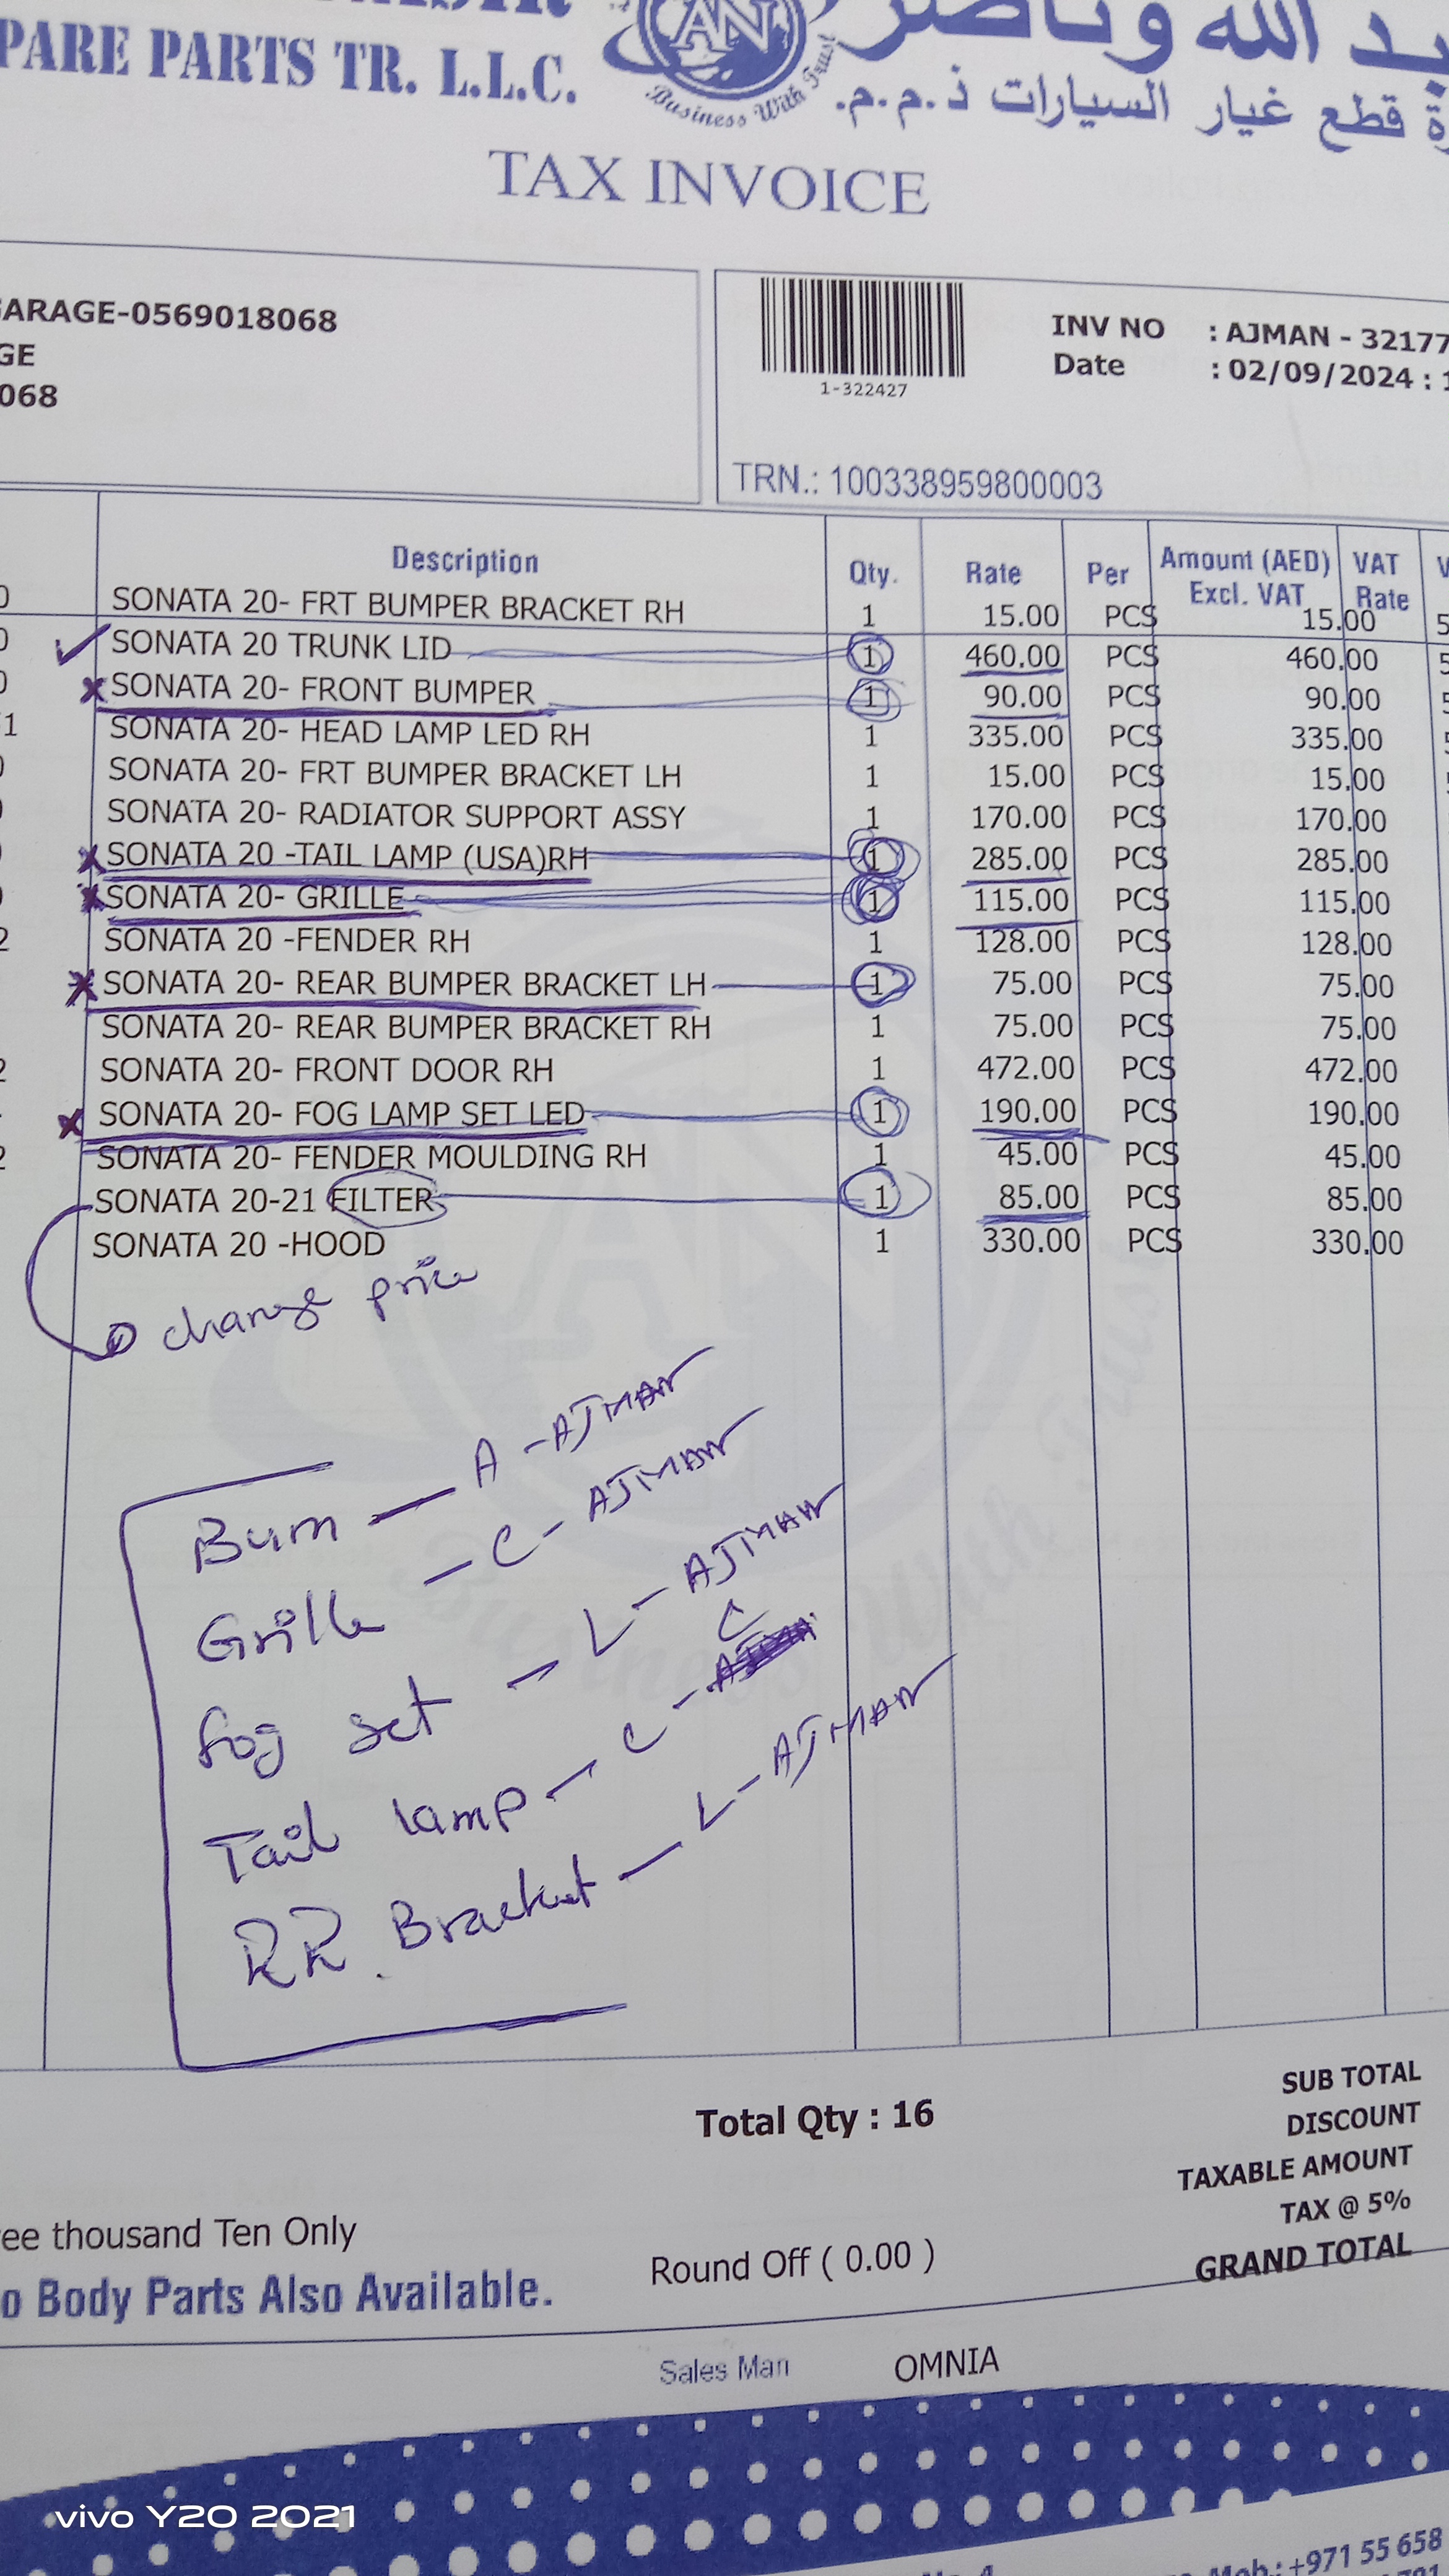 PARE PARTS TR. L.L.C.
AN
Business With Trust
بد الله وناصر
ة قطع غيار السيارات ذ.م.م.
TAX INVOICE
GARAGE-0569018068
GE
068
1-322427
INV NO : AJMAN - 32177
Date : 02/09/2024 : 1
TRN.: 100338959800003
Description Qty. Rate Per Amount (AED) Excl. VAT VAT Rate V
0 SONATA 20- FRT BUMPER BRACKET RH 1 15.00 PCS 15.00 5
0 SONATA 20 TRUNK LID 1 460.00 PCS 460.00 5
0 SONATA 20- FRONT BUMPER 1 90.00 PCS 90.00 5
1 SONATA 20- HEAD LAMP LED RH 1 335.00 PCS 335.00 5
SONATA 20- FRT BUMPER BRACKET LH 1 15.00 PCS 15.00 5
SONATA 20- RADIATOR SUPPORT ASSY 1 170.00 PCS 170.00
SONATA 20 -TAIL LAMP (USA)RH 1 285.00 PCS 285.00
SONATA 20- GRILLE 1 115.00 PCS 115.00
2 SONATA 20 -FENDER RH 1 128.00 PCS 128.00
SONATA 20- REAR BUMPER BRACKET LH 1 75.00 PCS 75.00
SONATA 20- REAR BUMPER BRACKET RH 1 75.00 PCS 75.00
2 SONATA 20- FRONT DOOR RH 1 472.00 PCS 472.00
SONATA 20- FOG LAMP SET LED 1 190.00 PCS 190.00
2 SONATA 20- FENDER MOULDING RH 1 45.00 PCS 45.00
SONATA 20-21 FILTER 1 85.00 PCS 85.00
SONATA 20 -HOOD 1 330.00 PCS 330.00
change price
Bum — A - AJMAN
Grille — C - AJMAN
fog set — L - AJMAN
Tail lamp — C - C
RR. Bracket — L - AJMAN
Business With Trust
Total Qty : 16
SUB TOTAL
DISCOUNT
TAXABLE AMOUNT
TAX @ 5%
GRAND TOTAL
ee thousand Ten Only
Round Off ( 0.00 )
o Body Parts Also Available.
Sales Man OMNIA
vivo Y20 2021
Mob.: +971 55 658